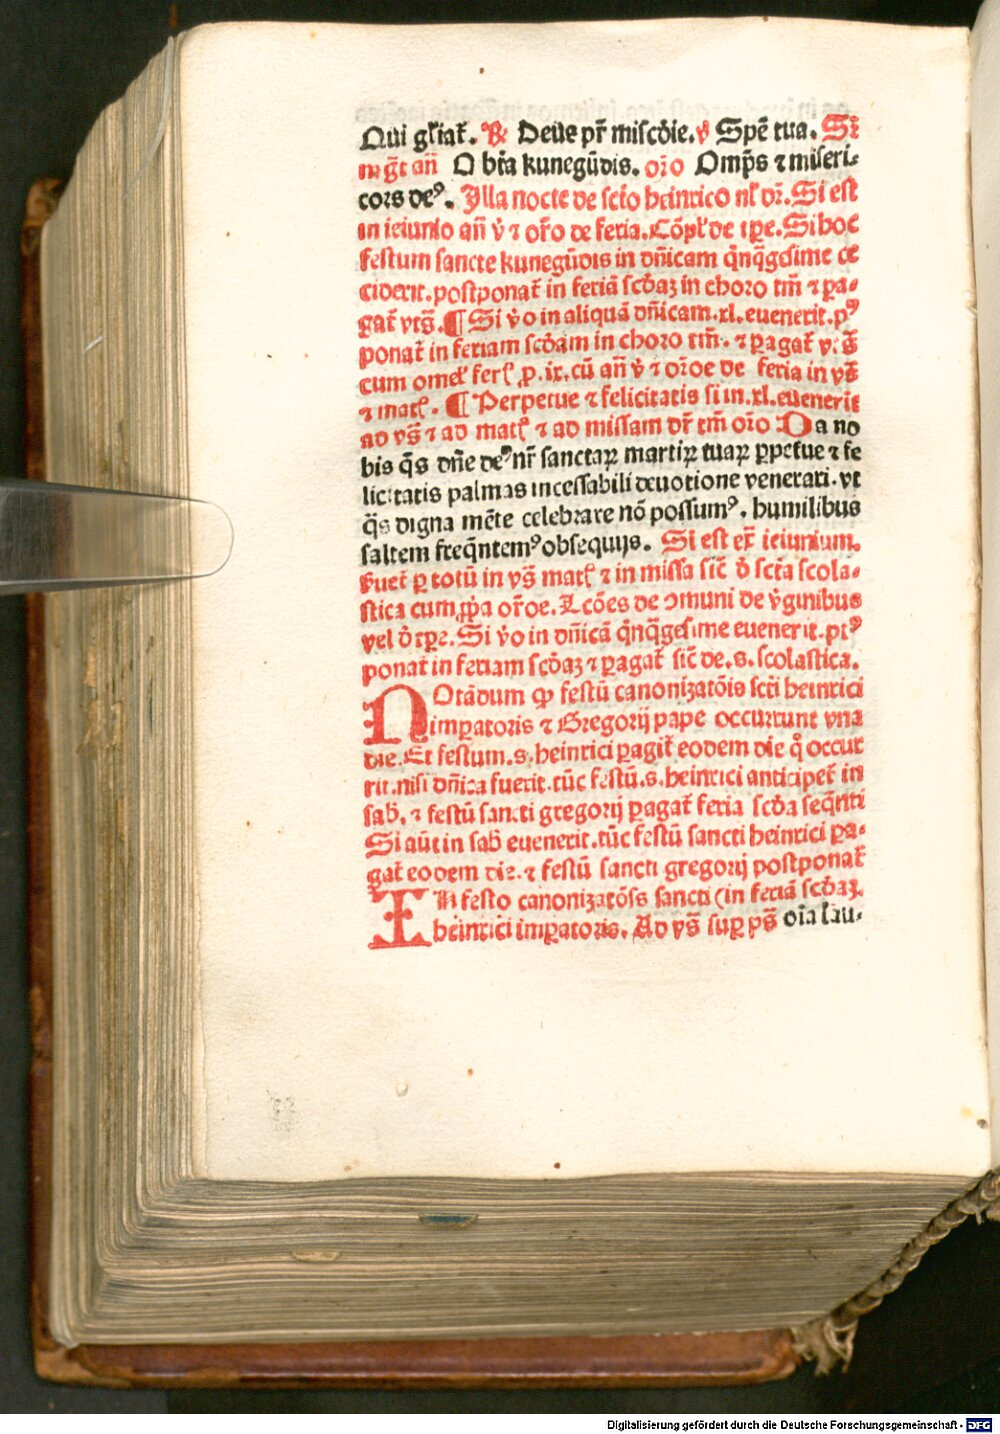 Qui gl̄iat̄. ℟ Deue pr̄ misc̄die. ℣ Spē tua. Si
mḡt an̄ O bt̄a kunegūdis. or̄o Omp̄s ⁊ miseri-
cors deꝰ. Illa nocte de scīo heinrico nl̄ dr̄. Si est
in ieiunio an̄ v̄ ⁊ or̄o de feria. Cōpl̄ de tp̄e. Si hoc
festum sancte kunegūdis in dn̄icam q̄nq̄gesime ce
ciderit. postponat̄ in feriā sc̄daꝫ in choro tm̄ ⁊ ꝑa-
gat̄ vts̄. ¶ Si v̄o in aliquā dn̄icam. xl. euenerit. pꝰ
ponat̄ in feriam sc̄dam in choro tm̄. ⁊ ꝑagat̄ v. s̄
cum omel̄ ferl̄ ꝓ. ix. cū an̄ v̄ ⁊ or̄oe de feria in vs̄
⁊ matl̄. ¶ Perpetue ⁊ felicitatis si in. xl. euenerit
ad vs̄ ⁊ ad matl̄ ⁊ ad missam dr̄ tm̄ or̄o Da no
bis q̄s dn̄e deꝰ nr̄ sanctaꝝ martiꝝ tuaꝝ ꝑpetue ⁊ fe
licitatis palmas incessabili deuotione venerari. vt
q̄s digna mēte celebrare nō possumꝰ. humilibus
saltem freq̄ntemꝰ obsequijs. Si est ex̄ ieiunium.
fuet̄ ꝑ totū in vs̄ matl̄ ⁊ in missa sic̄ d̄ sct̄a scola-
stica cum ꝓp̄a or̄oe. Lcōes de ꝯmuni de v̄ginibus
vel d̄ tp̄e. Si v̄o in dn̄icā q̄nq̄gesime euenerit. ptꝰ
ponat̄ in feriam sc̄daꝫ ⁊ ꝑagat̄ sic̄ de. s. scolastica.
NOtādum ꝙ festū canonizatōis sct̄i heinrici
imꝑatoris ⁊ Gregorij pape occurrunt vna
die. Et festum. s. heinrici ꝑagit̄ eodem die q̄ occur
rit. nisi dn̄ica fuerit. tūc festū. s. heinrici anticipet̄ in
sab̄. ⁊ festū sancti gregorij ꝑagat̄ feria sc̄da seq̄nti
Si aūt in sab̄ euenerit. tūc festū sancti heinrici ꝑa-
gat̄ eodem die. ⁊ festū sancti gregorij postponat̄
IN festo canonizatōis sancti (in feriā sc̄daꝫ.
heinrici imꝑatoris. Ad vs̄ suꝑ ps̄ oīa lau-
Digitalisierung gefördert durch die Deutsche Forschungsgemeinschaft - DFG